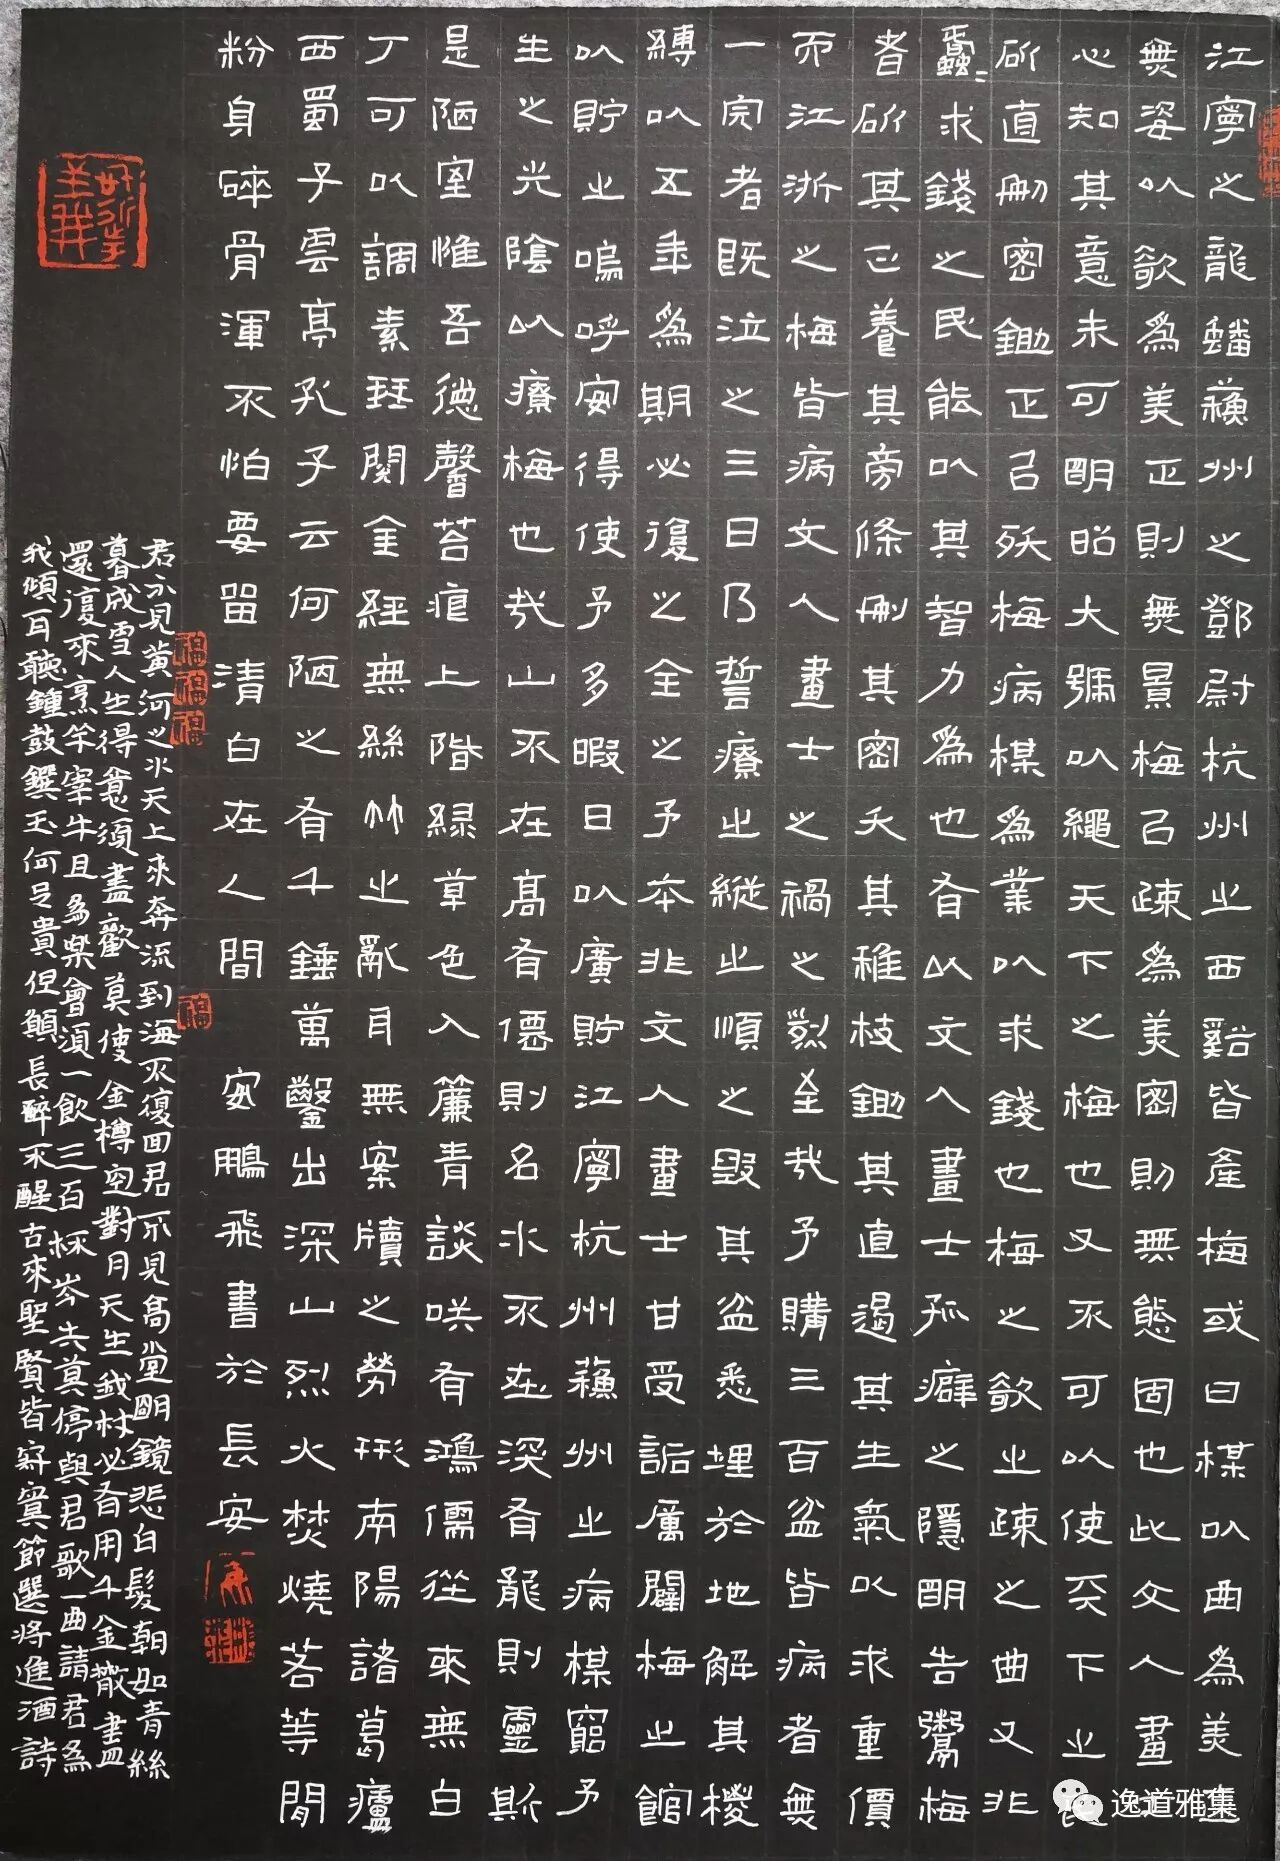 江寧之龍蟠蘓州之鄧尉杭州之西谿皆產梅或曰楳以曲為美直
無姿以欹為美正則無景梅以疎為美密則無態固也此文人畫士
心知其意未可明昭大號以繩天下之梅也又不可以使天下之民
斫直刪密鋤正以殀梅病楳為業以求錢也梅之欹之疎之曲又非
蠢〻求錢之民能以其智力為也有以文人畫士孤癖之隱明告鬻梅
者斫其正養其旁條刪其密夭其稚枝鋤其直遏其生氣以求重價
而江浙之梅皆病文人畫士之禍之烈至哉予購三百盆皆病者無
一完者既泣之三日乃誓療之縱之順之毀其盆悉埋於地解其椶
縛以五年為期必復之全之予本非文人畫士甘受詬厲闢梅之館
以貯之嗚呼安得使予多暇日以廣貯江寧杭州蘓州之病楳窮予
生之光陰以療梅也哉山不在高有僊則名水不在深有龍則靈斯
是陋室惟吾德馨苔痕上階緑草色入簾青談咲有鴻儒往來無白
丁可以調素琴閱金經無絲竹之亂耳無案牘之勞形南陽諸葛廬
西蜀子雲亭孔子云何陋之有千錘萬鑿出深山烈火焚燒若等閒
粉身碎骨渾不怕要留清白在人間 安鵬飛書於長安
君不見黃河之水天上來奔流到海不復回君不見高堂明鏡悲白髮朝如青絲
暮成雪人生得意須盡歡莫使金樽空對月天生我材必有用千金散盡
還復來烹羊宰牛且為樂會須一飲三百杯岑夫莫停與君歌一曲請君為
我傾耳聽鐘鼓饌玉何足貴但願長醉不醒古來聖賢皆寂寞節選將進酒詩
福
福
福
福
逸道雅集